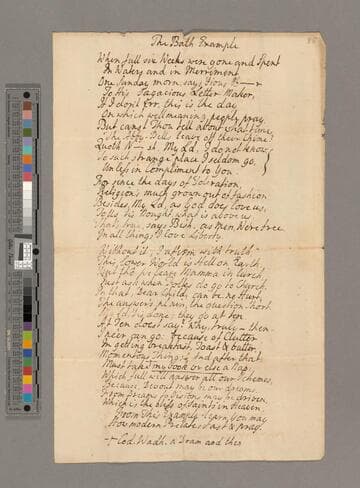 The Bath Example
When full six Weeks were gone and Spent
In Waters and in Merriment
One Sunday morn, says Pious
To His Sagacious Letter Maker,
If I don't Err, this is the day
On which well meaning people pray
But canst Thou tell about what time,
The Bells leave off their Chime?
Quoth My Ld, I do not know,
To such strange place I seldom go,
Unless in Compliment to You
For since the days of Toleration
Religion's much grown out of Fashion
Besides My Ld, as God does love us,
Tells us Nought what is above us
That's true, says Bish, as Men, We're free
In all things I love Liberty
Without it, I affirm with truth
This lower World is Hell on Earth,
But to please Mamma Church,
Just ask when Folks do go to Church,
In that, Dear Child, can be no Hurt,
The answer's plain, the question short
My Ld 'tis done; they go at Ten
At Ten does't say? Why, truly then
I ne'er can go: because of Clutter
In getting breakfast, Toast & butter
Momentous Things; And after that
I must take my book or else a Nap,
Which full will answer all our Schemes,
Because Devout may be our dreams
From Dreams to Visions may be driven,
Which is the bliss of Saints in Heaven
From This Example learn You may
How modern Prelates fast & pray.
Cod. Wadh. a Dram and then